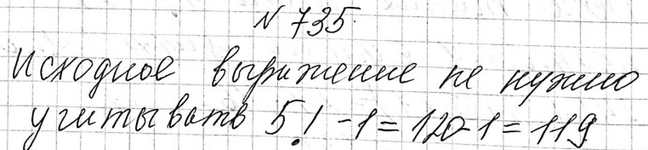 N 735.
Исходное выражение не нужно
учитывать 5! -1 = 120-1 = 119